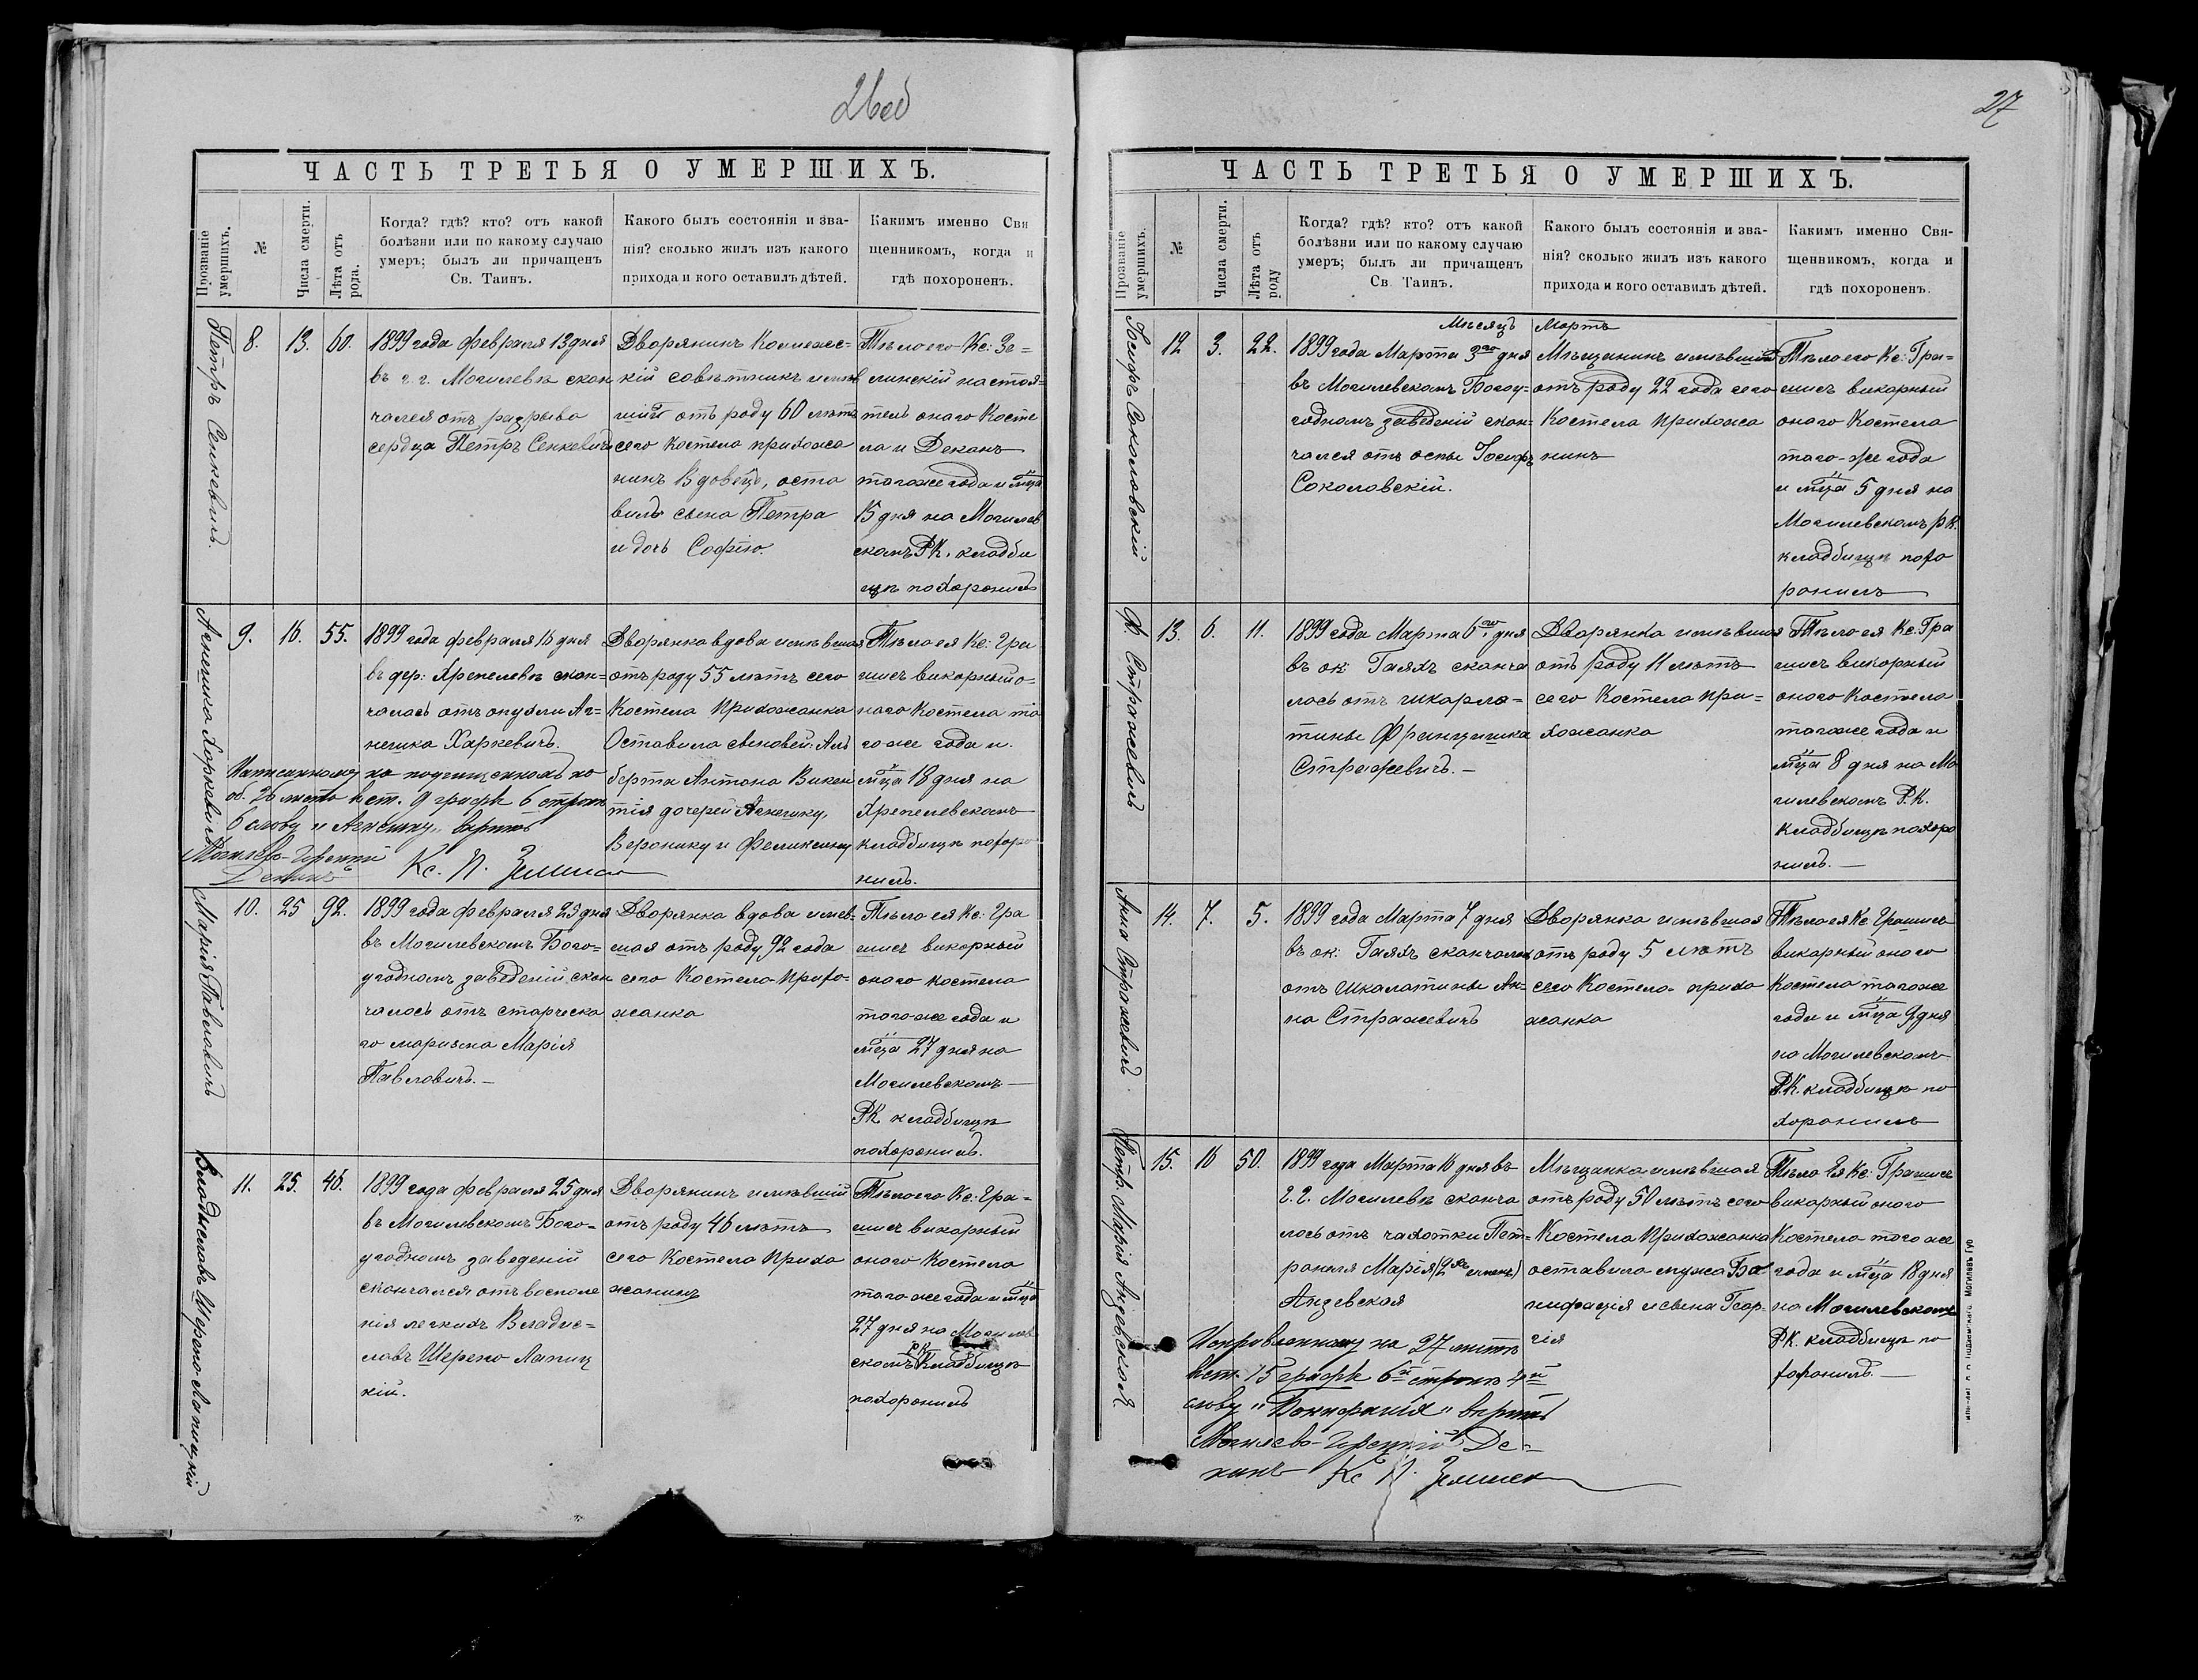 26об
ЧАСТЬ ТРЕТЬЯ О УМЕРШИХЪ.
Прозваніе умершихъ.
№
Числа смерти.
Лѣта отъ рода.
Когда? гдѣ? кто? отъ какой
болѣзни или по какому случаю
умеръ; былъ ли причащенъ
Св. Таинъ.
Какого былъ состоянія и зва-
нія? сколько жилъ изъ какого
прихода и кого оставилъ дѣтей.
Какимъ именно Свя
щенникомъ, когда и
гдѣ похороненъ.
Петръ Сенкевичъ.
8.
13.
60.
1899 года февраля 13 дня
въ г. г. Могилевѣ скон
чался отъ разрыва
сердца Петръ Сенкевичъ
Дворянинъ Коллежс-
кій совѣтникъ имѣв
шій отъ роду 60 лѣтъ
сего Костела прихожа
нинъ Вдовецъ, оста
вилъ сына Петра
и дочь Софію.
Тѣло его Кс: Зе-
линскій настоя-
тель онаго Косте
ла и Деканъ
того же года и мца
15 дня на Могилев
скомъ Р.К. кладби
щѣ похоронилъ
Агнешка Харкевичъ
9.
16.
55.
1899 года февраля 16 дня
въ дер: Хрепелевѣ скон-
чалась отъ опухли Аг-
нешка Харкевичъ.
Дворянка вдова имѣвшая
отъ роду 55 лѣтъ сего
Костела Прихожанка
Оставила сыновей: Аль
берта Антона Викен
тія дочерей Агнешку,
Веронику и Феликсину
Тѣло ея Кс: Гри
шисъ викарный о-
наго Костела то
го-же года и
мца 18 дня на
Хрепелевскомъ
кладбищѣ похоро
нилъ.
Написанному по подчищенному на
об. 26 листа въ ст. 9 графѣ 6 строкѣ
6 слову „Агнешку„ вѣрить
Могилево-Горецкій
Деканъ Кс. П.
Марія Павловичъ
10.
25
92.
1899 года февраля 25 дня
въ Могилевскомъ Бого-
угодномъ заведеній скон
чалась отъ старческа
го маразма Марія
Павловичъ.—
Дворянка вдова имѣв-
шая отъ роду 92 года
сего Костела Прихо-
жанка
Тѣло ея Кс: Гра
шисъ викарный
онаго костела
того-же года и
мца 27 дня на
Могилевскомъ—
РК кладбищѣ
похоронилъ.
Владиславъ Шерепо-Лапицкій
11.
25.
46.
1899 года февраля 25 дня
въ Могилевскомъ Бого-
угодномъ заведеній
скончался отъ воспале
нія легкихъ Владис-
лавъ Шерепо Лапиц
кій.
Дворянинъ имѣвшій
отъ роду 46 лѣтъ
сего Костела Прихо
жанинъ
Тѣло его Кс: Гра-
шисъ викарный
онаго Костела
того же года и мца
27 дня на Могилев
скомъ РК Кладбищѣ
похоронилъ
27
ЧАСТЬ ТРЕТЬЯ О УМЕРШИХЪ.
Прозваніе умершихъ.
№
Числа смерти.
Лѣта отъ роду
Когда? гдѣ? кто? отъ какой
болѣзни или по какому случаю
умеръ; былъ ли причащенъ
Св. Таинъ.
Какого былъ состоянія и зва-
нія? сколько жилъ изъ какого
прихода и кого оставилъ дѣтей.
Какимъ именно Свя-
щенникомъ, когда и
гдѣ похороненъ.
Мѣсяцъ Мартъ
Іосифъ Соколовскій
12
3.
22.
1899 года Марта 3го дня
въ Могилевскомъ Богоу-
годномъ заведеній скон-
чался отъ оспы Іосифъ
Соколовскій.
Мѣщанинъ имѣвшій
отъ роду 22 года сего
Костела Прихожа
нинъ
Тѣло его Кс: Гра-
шисъ викарный
онаго Костела
того-же года
и мца 5 дня на
Могилевскомъ Р.К.
кладбищѣ похо
ронилъ
Ф. Стражевичъ
13.
6.
11.
1899 года Марта 6го дня
въ ок: Гаяхъ сконча
лась отъ шкарла-
тины Францишка
Стражевичъ.—
Дворянка имѣвшая
отъ роду 11 лѣтъ
сего Костела При-
хожанка
Тѣло ея Кс: Гра
шисъ викарный
онаго Костела
того же года и
мца 8 дня на Мо
гилевскомъ Р.К.
Кладбищѣ похоро
нилъ.—
Анна Стражевичъ
14.
7.
5.
1899 года Марта 7 дня
въ ок: Гаяхъ скончалась
отъ шкалатины Ан-
на Стражевичъ
Дворянка имѣвшая
отъ роду 5 лѣтъ
сего Костела прихо
жанка
Тѣло ея Кс Грашисъ
викарный онаго
Костела того же
года и мца 9 дня
на Могилевскомъ
Р.К. кладбищѣ по
хоронилъ
Петр. Марія Анзевская.
15.
16
50.
1899 года Марта 16 дня въ
г. г. Могилевѣ сконча
лась отъ чахотки Пет-
ронеля Марія (2хъ именъ)
Анзевская
Мѣщанка имѣвшая
отъ роду 50 лѣтъ сего
Костела Прихожанка
оставила мужа Бо
нифація и сына Геор-
гія
Тѣло Ея Кс: Грашисъ
викарный онаго
Костела того же
года и мца 18 дня
на Могилевскомъ
РК. кладбищѣ по
хоронилъ.—
Исправленному на 27 листѣ
въ ст. 15 графѣ 6й строкѣ 4й
слову „Бонифація„ вѣрить
Могилево-Горецкій Де-
канъ Кс П.